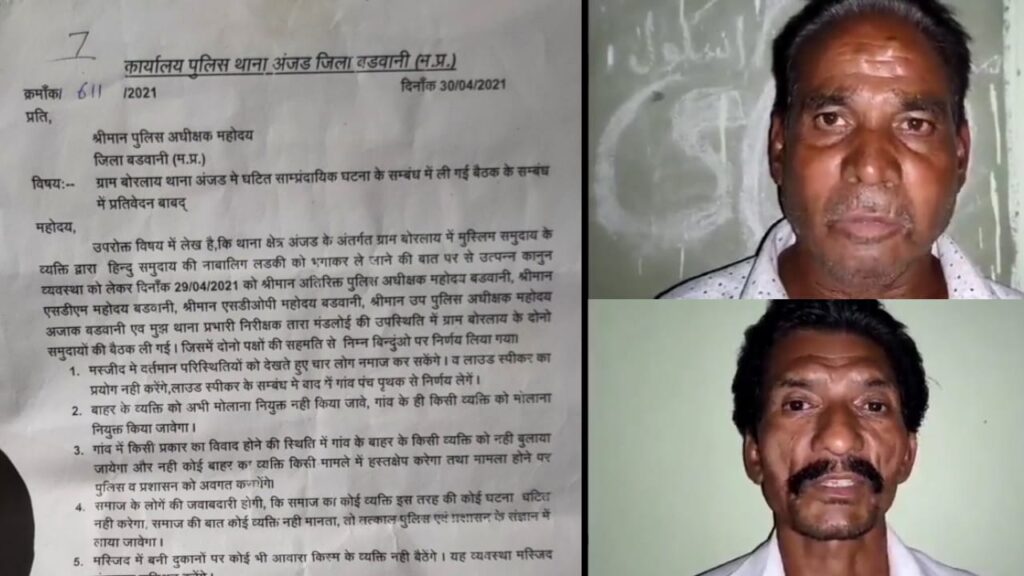 7
कार्यालय पुलिस थाना अंजड जिला बडवानी (म.प्र.)
क्रमाँक/ 611 /2021 दिनाँक 30/04/2021
प्रति,
श्रीमान पुलिस अधीक्षक महोदय
जिला बडवानी (म.प्र.)
विषय:-- ग्राम बोरलाय थाना अंजड मे घटित साम्प्रंदायिक घटना के सम्बंध में ली गई बैठक के सम्बंध
में प्रतिवेदन बाबद्
महोदय,
उपरोक्त विषय में लेख है,कि थाना क्षेत्र अंजड के अंतर्गत ग्राम बोरलाय में मुस्लिम समुदाय के
व्यक्ति द्वारा हिन्दु समुदाय की नाबालिग लडकी को भगाकर ले जाने की बात पर से उत्पन्न कानुन
व्यवस्था को लेकर दिनाँक 29/04/2021 को श्रीमान अतिरिक्त पुलिस अधीक्षक महोदय बडवानी, श्रीमान
एसडीएम महोदय बडवानी, श्रीमान एसडीओपी महोदय बडवानी, श्रीमान उप पुलिस अधीक्षक महोदय
अजाक बडवानी एव मुझ थाना प्रभारी निरीक्षक तारा मंडलोई की उपस्थिति में ग्राम बोरलाय के दोनो
समुदायों की बैठक ली गई। जिसमें दोनो पक्षों की सहमति से निम्न बिन्दुंओ पर निर्णय लिया गया।
1. मस्जीद मे वर्तमान परिस्थितियों को देखते हुए चार लोग नमाज कर सकेंगे। व लाउड स्पीकर का
प्रयोग नही करेंगे,लाउड स्पीकर के सम्बंध मे बाद में गांव पंच पृथक से निर्णय लेगें।
2. बाहर के व्यक्ति को अभी मोलाना नियुक्त नही किया जावे, गांव के ही किसी व्यक्ति को मोलाना
नियुक्त किया जावेगा।
3. गांव में किसी प्रकार का विवाद होने की स्थिति में गांव के बाहर के किसी व्यक्ति को नही बुलाया
जायेगा और नही कोई बाहर का व्यक्ति किसी मामले में हस्तक्षेप करेगा तथा मामला होने पर
पुलिस व प्रशासन को अवगत
4. समाज के लोगों की जवाबदारी होगी, कि समाज का कोई व्यक्ति इस तरह की कोई घटना घटित
नही करेगा, समाज की बात कोई व्यक्ति नही मानता, तो तत्काल पुलिस एवं प्रशासन के संज्ञान में
लाया जावेगा।
5. मस्जिद में बनी दुकानों पर कोई भी आवारा किस्म के व्यक्ति नही बैठेंगे। यह व्यवस्था मस्जिद